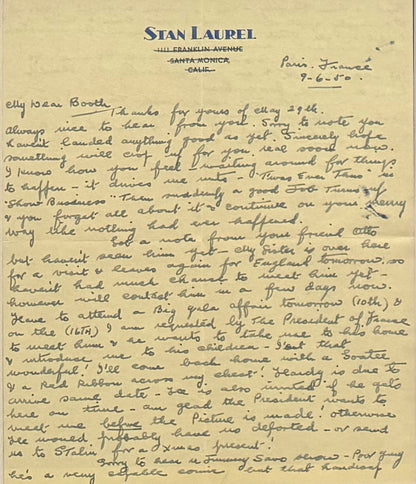 STAN LAUREL
1111 FRANKLIN AVENUE
SANTA MONICA,
CALIF.
Paris. France
9-6-50.
My Dear Booth,
Thanks for yours of May 29th.
Always nice to hear from you. Sorry to note you
haven't landed anything good as yet. Sincerely hope
something will crop up for you real soon now.
I know how you feel waiting around for things
to happen - it drives me nuts - 'Twas Ever Thus" is
"Show Business". Then suddenly a good Job Turns up
& you forget all about it & continue on your merry
way like nothing had ever happened.
Got a note from your friend Otto
but haven't seen him yet - My Sister is over here
for a visit & leaves again for England tomorrow, so
haven't had much chance to meet him yet -
however will contact him in a few days now.
Have to attend a Big gala affair tomorrow (10th) &
on the (16TH) I am requested by The President of France
to meet him & he wants to take me to his home
& introduce me to his children. Isn't that
wonderful! I'll come back home with a Goatee
& a Red Ribbon across my chest! Hardy is due to
arrive same date - He is also invited if he gets
here on time - am glad the President wants to
meet us before the Picture is made! otherwise
He would probably have us deported - or send
us to Stalin for a Xmas present!
Sorry to hear re Jimmy Savo show - Poor guy
he's a very capable comic but that handicap